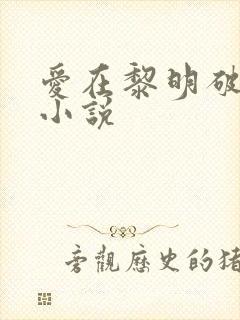 愛在黎明破
小說
旁觀歷史的豬